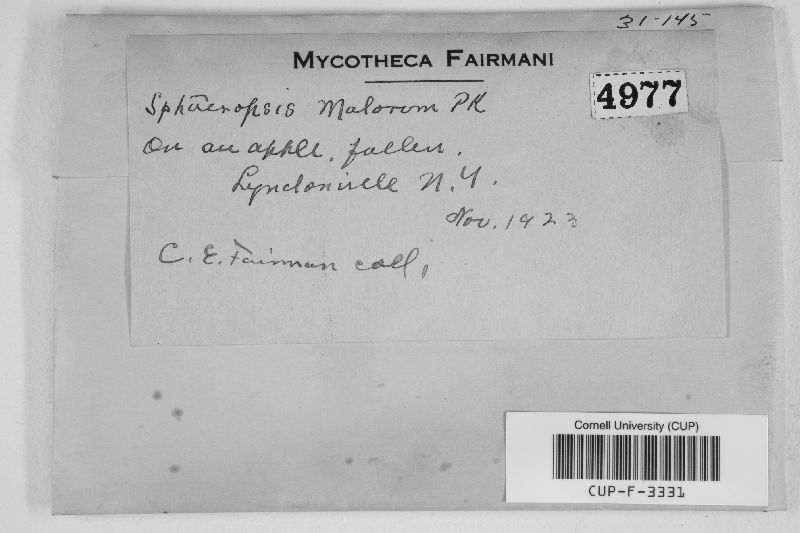 31-145
MYCOTHECA FAIRMANI
4977
Sphaeropsis Malorum PK
On an apple, fallen.
Lyndonville N.Y.
Nov. 1923
C. E. Fairman coll,
Cornell University (CUP)
CUP-F-3331